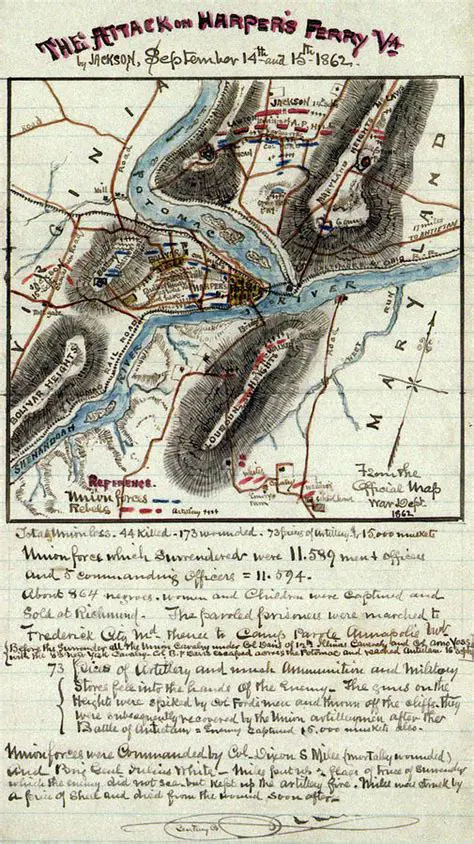 The Attack on Harper's Ferry Va
by JACKSON, September 14th and 15th 1862.
JACKSON
LAWTON
A.P. HILL
VIRGINIA
Road
Road
Mill
POTOMAC
MARYLAND HEIGHTS
MARYLAND
MILES TO ANTIETAM
HARPERS
RIVER
RAIL ROAD
BOLIVAR HEIGHTS
SHENANDOAH
RIVER
LOUDON HEIGHTS
Road
RUN
Reference.
Union forces
Rebels
Artillery
From the
Official Map
War Dept.
1862
Total Union loss. 44 killed - 173 wounded. 73 pieces of Artillery 15,000 muskets
Union force which Surrendered were 11.589 men & officers
And 5 commanding Officers = 11.594.
About 864 negroes. Women and Children were Captured and
Sold at Richmond. The paroled prisoners were marched to
Frederick City Md. thence to Camp Parole Annapolis Md.
Before the Surrender all the Union Cavalry under Col. Davis of 12th Illinois Cavalry and Col.
with the 8th New York Cavalry Escaped across the Potomac and reached Antietam
73 pieces of Artillery and much Ammunition and Military
Stores fell into the hands of the Enemy - The guns on the
Heights were spiked by Col Fords men and thrown off the cliffs. they
were subsequently recovered by the Union artillerymen after the
Battle of Antietam & Enemy Captured 15.000 muskets also.
Union forces were Commanded by Col. Dixon S Miles (mortally wounded)
And Brig Genl Julius White - Miles put up a flag of truce of Surrender
which the enemy did not see but kept up the artillery fire. Miles was struck by
a piece of Shell and died from the wound soon after.